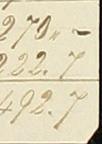 270 " -
222. 7
492. 7